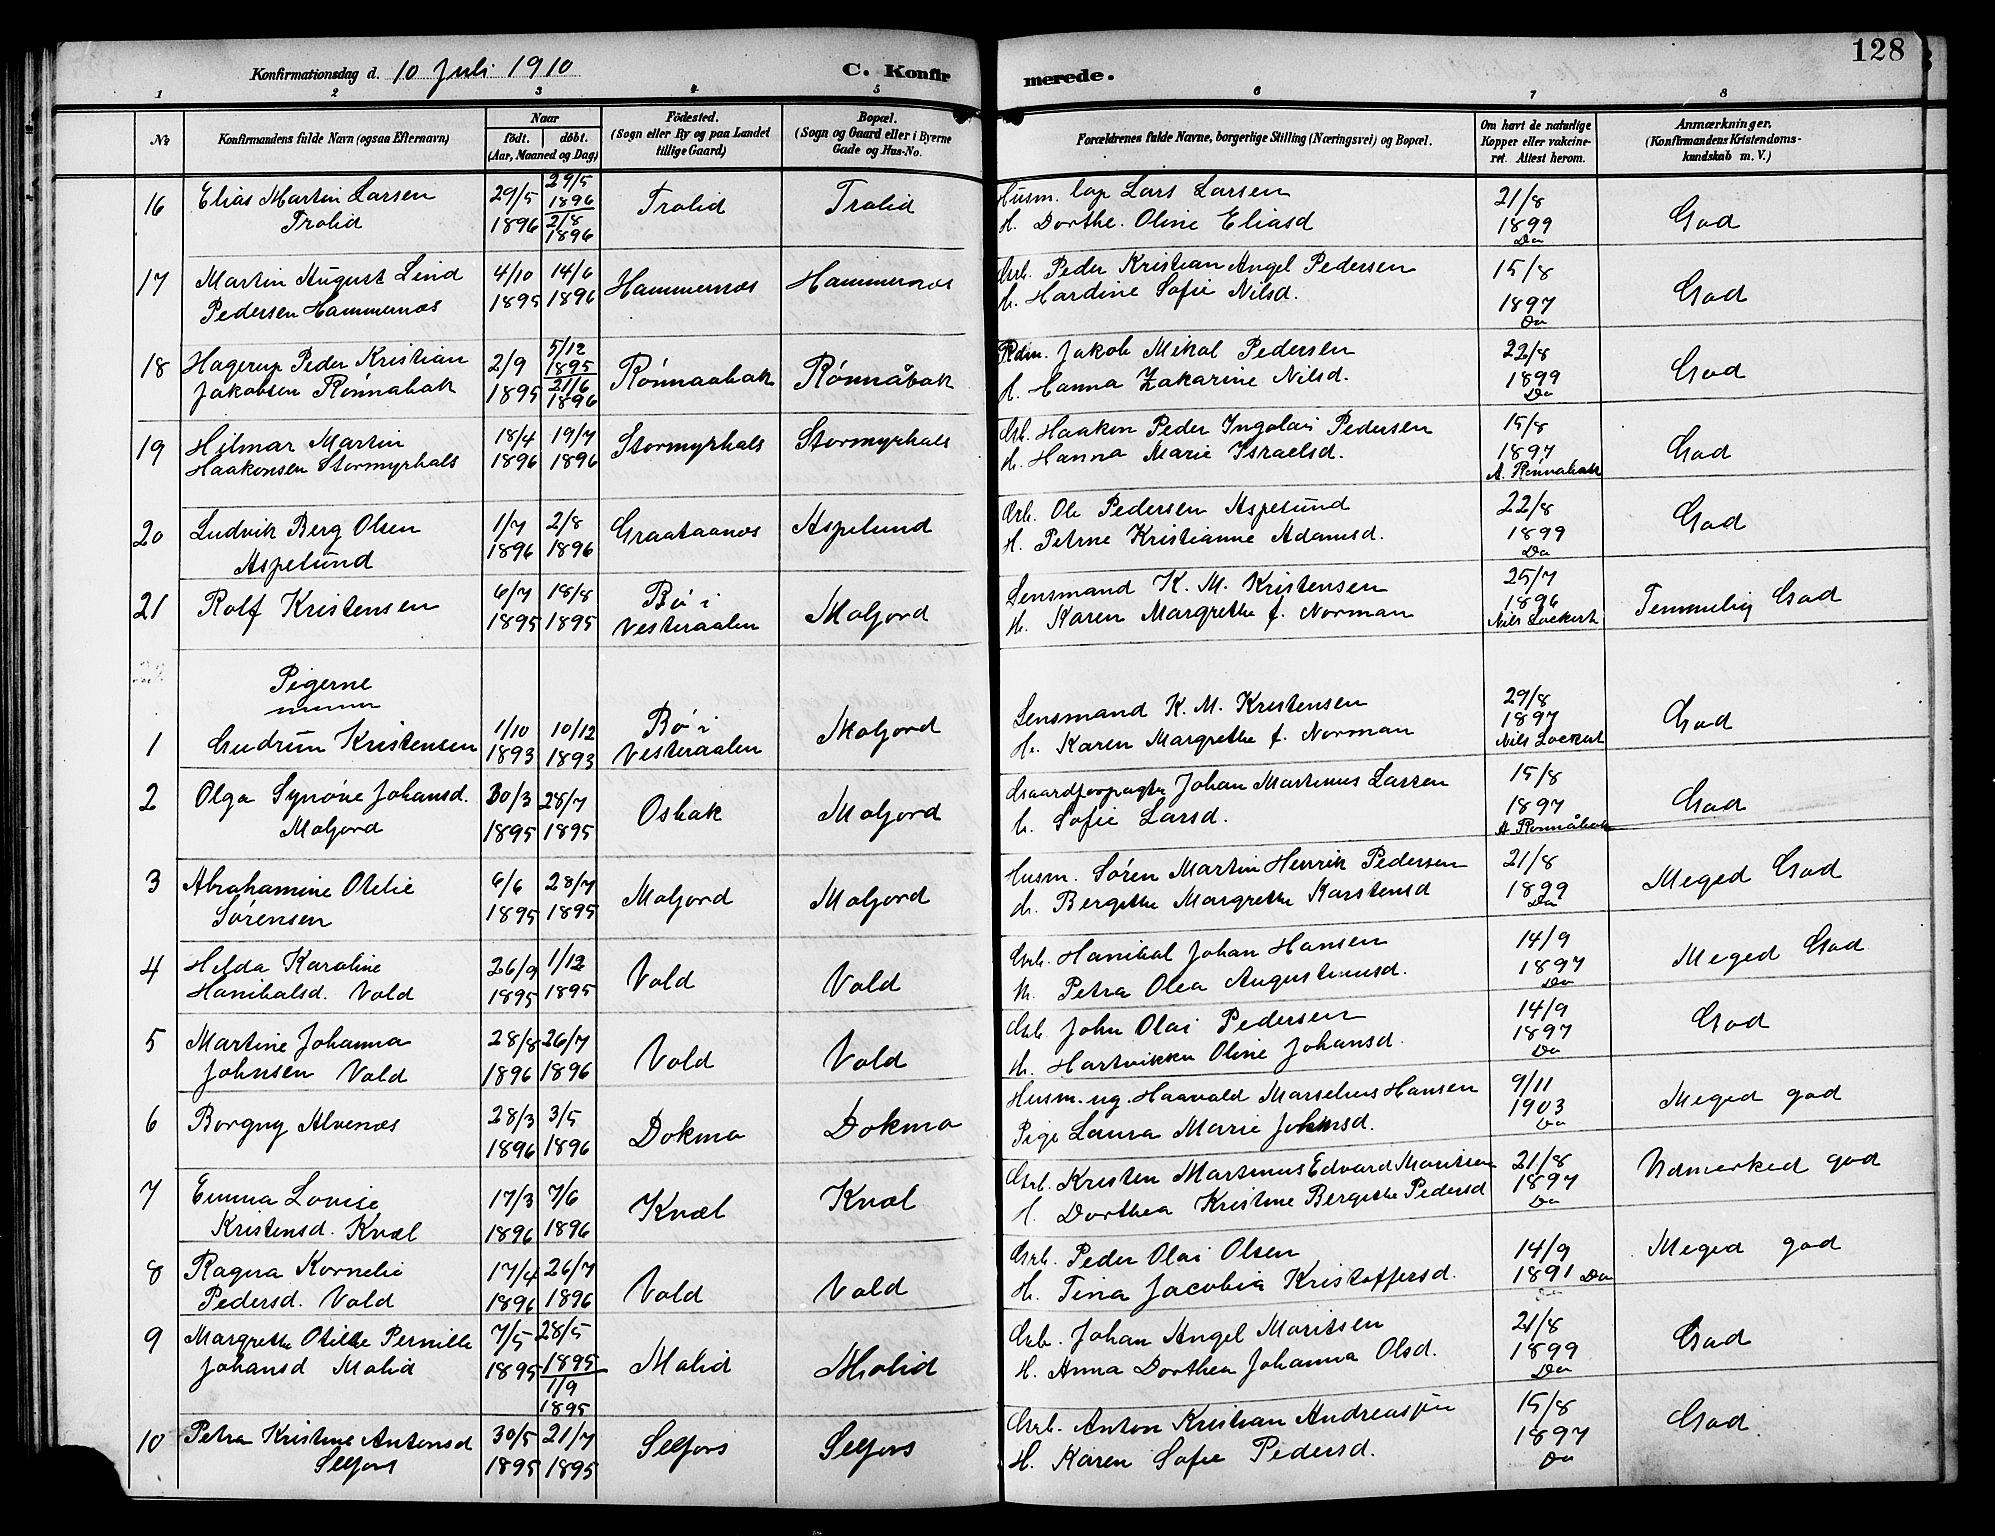 128
Konfirmationsdag d. 10 Juli 1910 C. Konfirmerede.
1 2 3 4 5 6 7 8
No Konfirmandens fulde Navn (ogsaa Efternavn) Naar født. døbt. (Aar, Maaned og Dag) Fødested. (Sogn eller By og paa Landet tillige Gaard) Bopæl. (Sogn og Gaard eller i Byerne Gade og Hus-No. Forældrenes fulde Navne, borgerlige Stilling (Næringsvei) og Bopæl. Om havt de naturlige Kopper eller vakcineret. Attest herom. Anmærkninger, (Konfirmandens Kristendomskundskab m. V.)
16 Elias Martin Larsen 29/5 29/5 1896 Trolid Trolid Husm. Lars Larsen 21/8 God
Trolid 1896 2/8 1896 H. Dorthe Oline Eliasd 1899 Do
17 Martin August Lind 4/10 14/6 Hammernæs Hammernæs Arb. Peder Kristian Angel Pedersen 15/8 God
Pedersen Hammernæs 1895 1896 H. Hardine Sofie Nilsd. 1897 Do
18 Hagerup Peder Kristian 2/9 5/12 1895 Rønnaabak Rønnåbak Rdm. Jakob Mikal Pedersen 22/8 God
Jakobsen Rønnabak 1895 21/6 1896 H. Hanna Zakarine Nilsd. 1899 Do
19 Hilmar Martin 18/4 19/7 Stormyrhals Stormyrhals Arb. Haakon Peder Ingolai Pedersen 15/8 God
Haakonsen Stormyrhals 1896 1896 H. Hanna Marie Israelsd. 1897 A. Rønnabak
20 Ludvik Berg Olsen 1/7 2/8 Graataanæs Aspelund Arb. Ole Pedersen Aspelund 22/8 God
Aspelund 1896 1896 H. Petrine Kristianne Adamsd. 1899 Do
21 Rolf Kristensen 6/7 18/8 Bø i Moljord Lensmand K. M. Kristensen 25/7 Temmelig God
1895 1895 Vesteraalen H. Karen Margrethe f. Norman 1896 Nils Lockert
Pigerne
1 Gudrun Kristensen 1/10 10/12 Bø i Moljord Lensmand K. M. Kristensen 29/8 1897 God
1893 1893 Vesteraalen H. Karen Margrethe f. Norman Nils Lockert
2 Olga Synøve Johansd. 30/3 28/7 Osbak Moljord Gaardforpagter Johan Martinus Larsen 15/8 God
Moljord 1895 1895 H. Sofie Larsd. 1897 A Rønnåbak
3 Abrahamine Otelie 6/6 28/7 Moljord Moljord Husm. Søren Martin Henrik Pedersen 21/8 Meged God
Sørensen 1895 1895 H. Bergitte Margrethe Karstensd 1899 Do
4 Helda Karoline 26/9 1/12 Vold Vold Arb. Hanibal Johan Hansen 14/9 Meged God
Hanibalsd. Vold 1895 1895 H. Petra Olea Augustinusd. 1897 Do
5 Martine Johanna 28/8 26/7 Vold Vold Arb John Olai Pedersen 14/9 God
Johnsen Vold 1896 1896 H. Hartvikka Oline Johansd. 1897 Do
6 Borgny Alvenæs 28/3 3/5 Dokmo Dokmo Husm. ug. Haavald Marselius Hansen 9/11 Meged god
1896 1896 Pige Laura Marie Johnsd. 1903 Do
7 Emma Lovise 17/3 7/6 Knæl Knæl Arb. Kristen Martinus Edvard Moritsen 21/8 Udmerked god
Kristensd. Knæl 1896 1896 H. Dorthea Kristine Bergithe Pedersd 1897 Do
8 Ragna Kornelie 17/4 26/7 Vold Vold Arb. Peder Olai Olsen 14/9 Meged god
Pedersd. Vold 1896 1896 H. Tina Jacobia Kristoffersd. 1891 Do
9 Margrethe Otilde Pernille 7/5 28/5 1895 Molid Molid Arb. Johan Angel Moritsen 21/8 God
Johansd Molid 1895 1/9 1895 H. Anna Dorthea Johanna Olsd. 1899 Do
10 Petra Kristine Antonsd 30/5 21/7 Selfors Selfors Arb. Anton Kristian Andreassen 15/8 God
Selfors 1895 1895 H. Karen Sofie Pedersd. 1897 Do